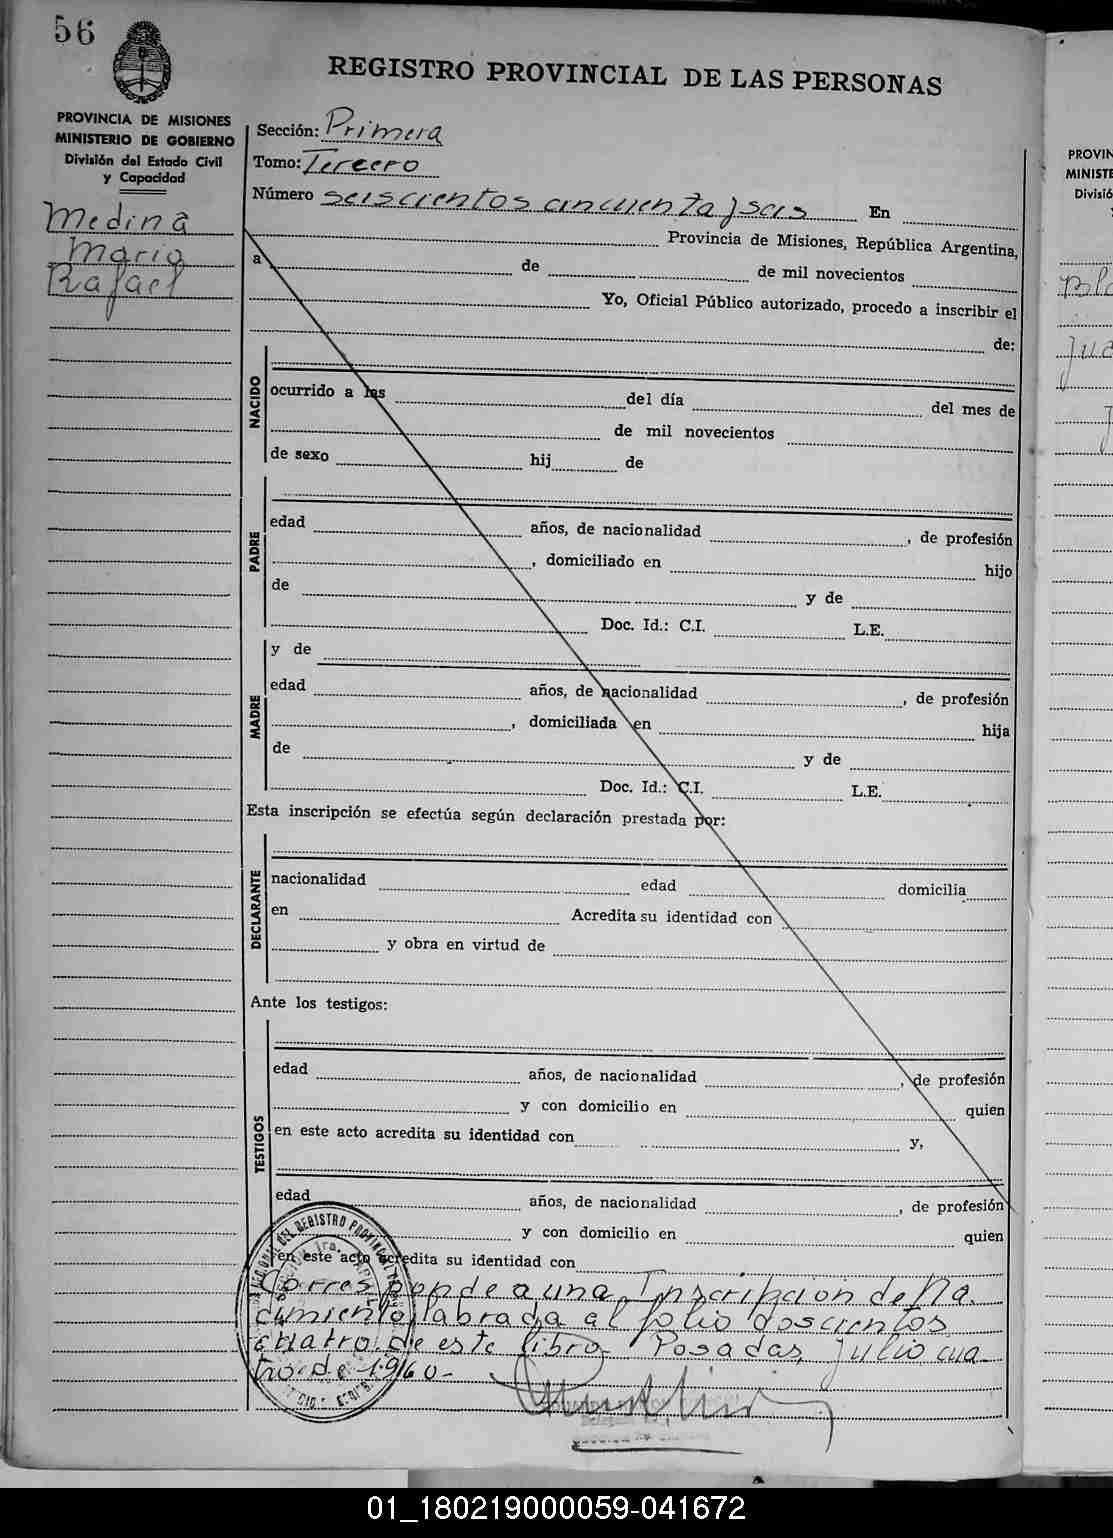 56
REGISTRO PROVINCIAL DE LAS PERSONAS
PROVINCIA DE MISIONES
MINISTERIO DE GOBIERNO
División del Estado Civil
y Capacidad
Medina
Mario
Rafael
Sección: Primera
Tomo: Tercero
Número seiscientos cincuenta y seis En
Provincia de Misiones, República Argentina,
a de de mil novecientos
Yo, Oficial Público autorizado, procedo a inscribir el
de:
NACIDO
ocurrido a las del día del mes de
de mil novecientos
de sexo hij de
PADRE
edad años, de nacionalidad , de profesión
, domiciliado en hijo
de y de
Doc. Id.: C.I. L.E.
MADRE
y de
edad años, de nacionalidad , de profesión
, domiciliada en hija
de y de
Doc. Id.: C.I. L.E.
Esta inscripción se efectúa según declaración prestada por:
DECLARANTE
nacionalidad edad domicilia
en Acredita su identidad con
y obra en virtud de
Ante los testigos:
TESTIGOS
edad años, de nacionalidad , de profesión
y con domicilio en quien
en este acto acredita su identidad con y,
edad años, de nacionalidad , de profesión
y con domicilio en quien
en este acto acredita su identidad con
Corresponde a una Inscripcion de Na
cimiento, labrada al folio doscientos
cuatro de este libro- Posadas, Julio cua
tro de 1960-
PROVIN
MINISTE
Divisió
Bla
Jua
01_180219000059-041672